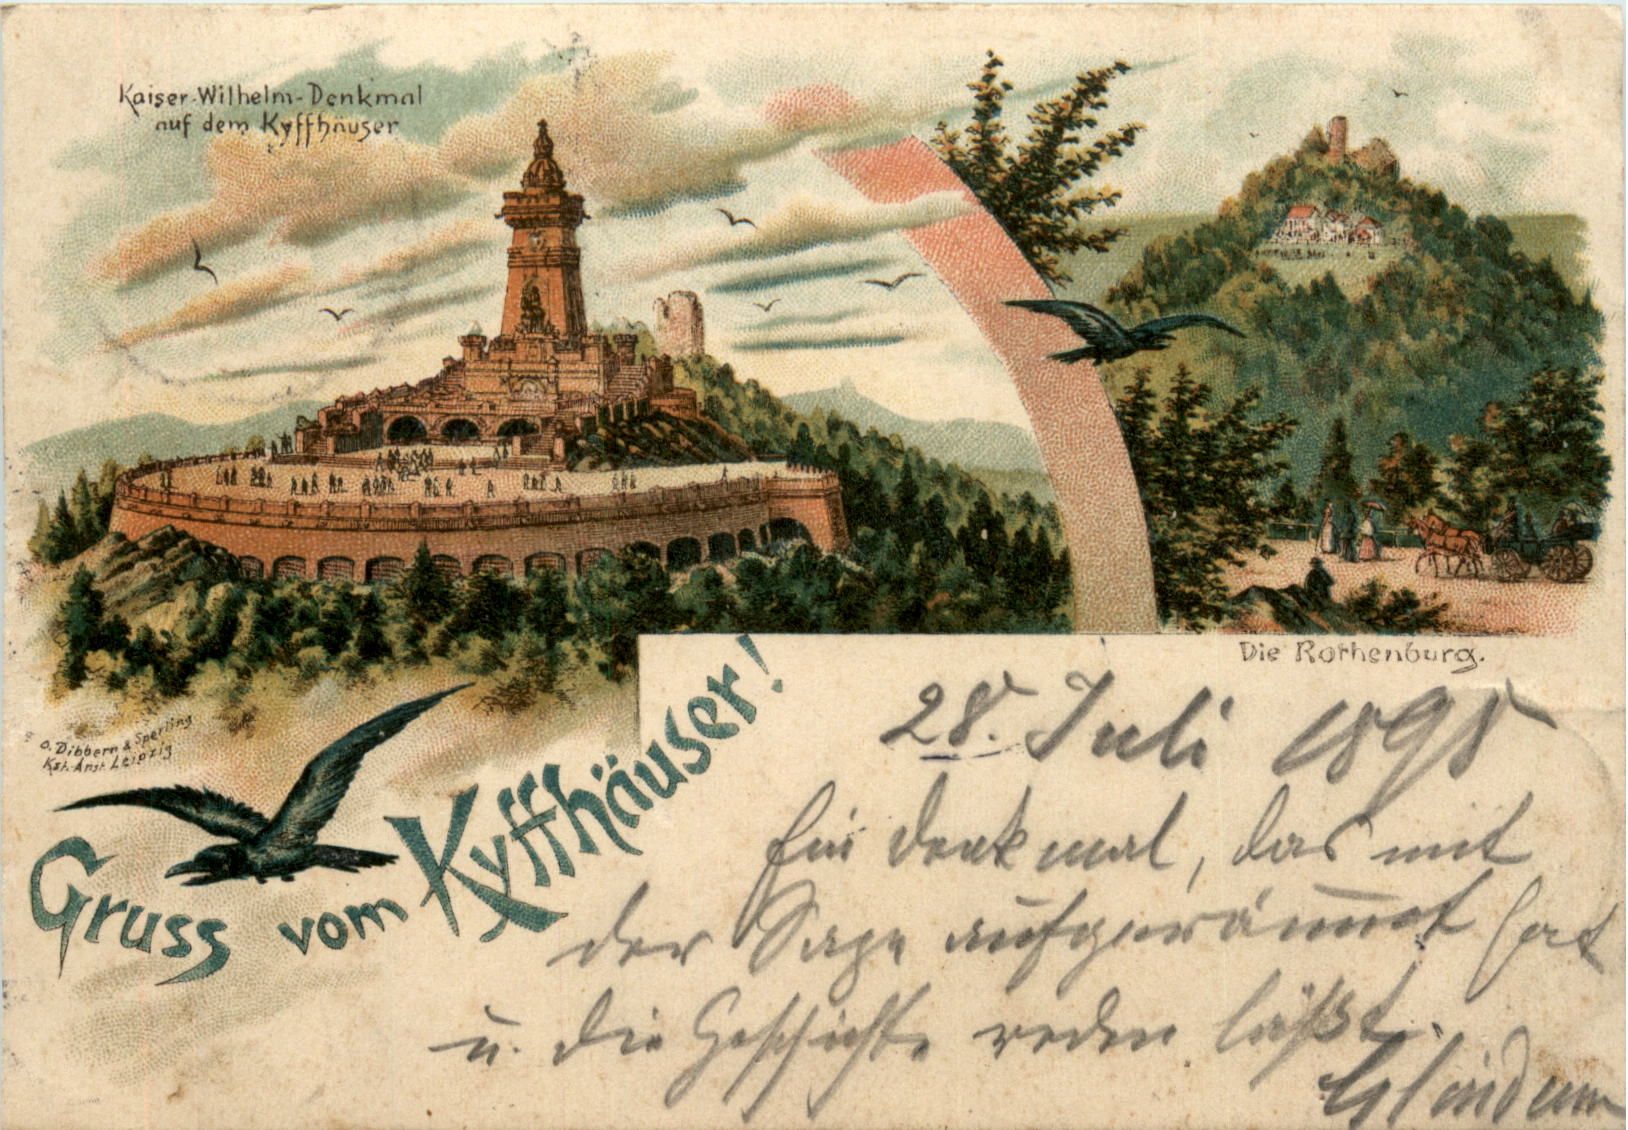 Kaiser-Wilhelm-Denkmal
auf dem Kyffhäuser
Die Rothenburg.
O. Dibbern & Sperling
Kst.-Anst. Leipzig
Gruss vom Kyffhäuser!
28. Juli 1898
Ein Denkmal, das mit
der Sage aufgeräumt hat
u. die Geschichte reden läßt.